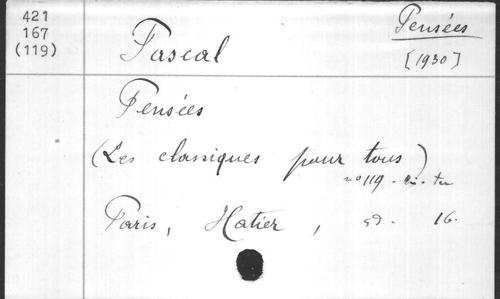 421
167
(119)
Pensées
[1930]
Pascal
Pensées
(Les classiques pour tous)
nº 119 -
Paris, Hatier, sd. 16.